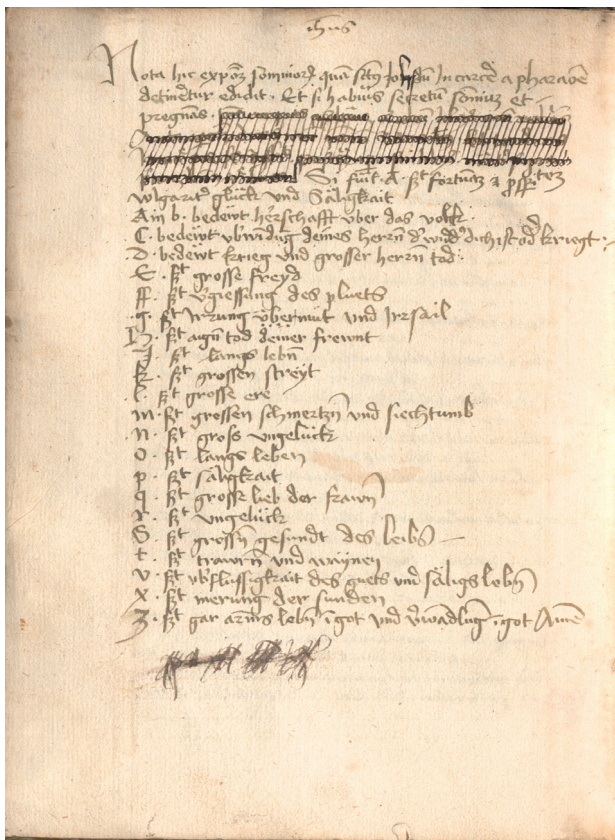 ihus
Nota hic expōem somniorz quā sctus Joseph In carcere a pharaone
detinetur edidit. Et si habuis secretum somniū et
pregnās.
Si fuit .A. szt fortunaz z
wlgarit glück und Säligkait
Ain b. bedewt herschafft über das volkh.
C. bedewt deines herrn
D. bedewt krieg und grosser herrn tod
E. szt grosse freyd
ff. szt v'giessung des pluets
g. szt Irrung übermüt und Irrsail
H. szt augn tod deiner frewnt
J. szt langs lebn
k. szt grossen streyt
l. szt grosse ere
m. szt grossen schmertzn und siechtumb
.n. szt gross ungelückh
o. szt langs leben
p. szt säligkait
q. szt grosse lieb der frawn
r. szt ungelückh
S. szt grossn gesundt des leibs
t. szt trawrn und waynen
v. szt vb'flussigkait des guets und säligs lebn
x. szt merung der sunden
Z. szt gar arms lebn i got und v'wādlung i got Amē